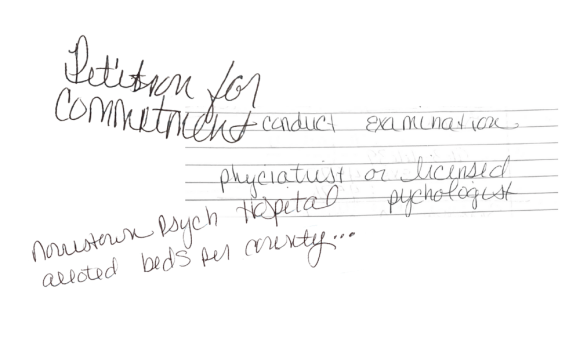 Petition for
Commetment
conduct examination.
phyciatrist or licensed
pychologist
Norristown Psych Hospetal
alloted beds per county...